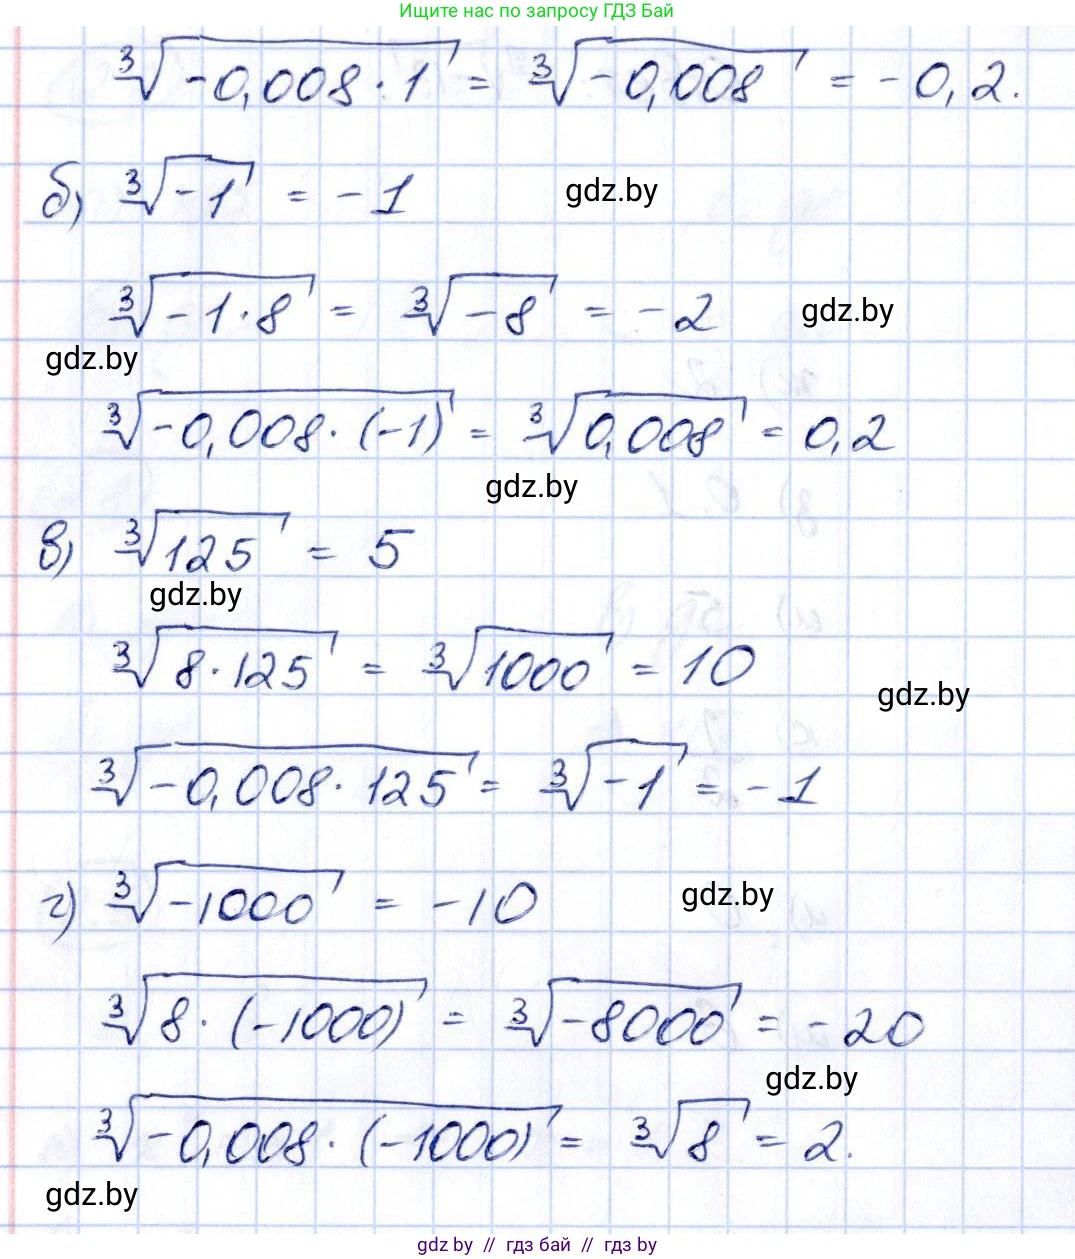 Ищите нас по запросу ГДЗ Бай
∛(-0,008 · 1) = ∛(-0,008) = -0,2.
б) ∛(-1) = -1
gdz.by
∛(-1 · 8) = ∛(-8) = -2
gdz.by
gdz.by
∛(-0,008 · (-1)) = ∛(0,008) = 0,2
gdz.by
в) ∛(125) = 5
gdz.by
∛(8 · 125) = ∛(1000) = 10
gdz.by
∛(-0,008 · 125) = ∛(-1) = -1
г) ∛(-1000) = -10
gdz.by
∛(8 · (-1000)) = ∛(-8000) = -20
gdz.by
∛(-0,008 · (-1000)) = ∛(8) = 2.
gdz.by
gdz by // гдз бай // гдз by